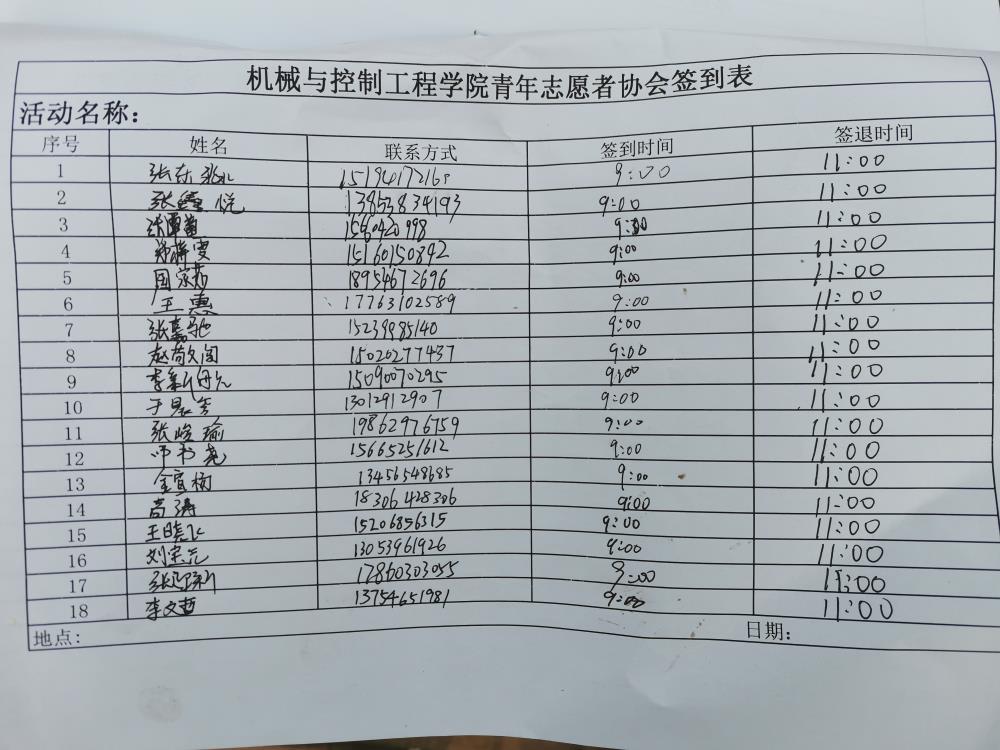 机械与控制工程学院青年志愿者协会签到表
活动名称：
序号 姓名 联系方式 签到时间 签退时间
1 张东兆 9:00 11:00
2 张鑫悦 13853834193 9:00 11:00
3 9:00 11:00
4 15160150842 9:00 11:00
5 18954672696 9:00 11:00
6 王惠 17763102589 9:00 11:00
7 张嘉驰 15239985140 9:00 11:00
8 15020277437 9:00 11:00
9 15090070295 9:00 11:00
10 13012912907 9:00 11:00
11 张峻瑜 19862976759 9:00 11:00
12 15665251612 9:00 11:00
13 13456548685 9:00 11:00
14 高涛 18306428306 9:00 11:00
15 王晓飞 15206856315 9:00 11:00
16 13053961926 9:00 11:00
17 17860303055 9:00 11:00
18 李文哲 13754651981 9:00 11:00
地点: 日期: